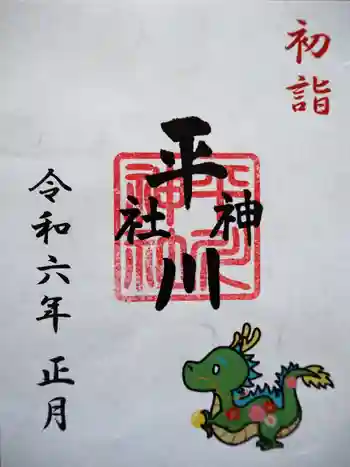 初詣
平川
神社
令和六年 正月